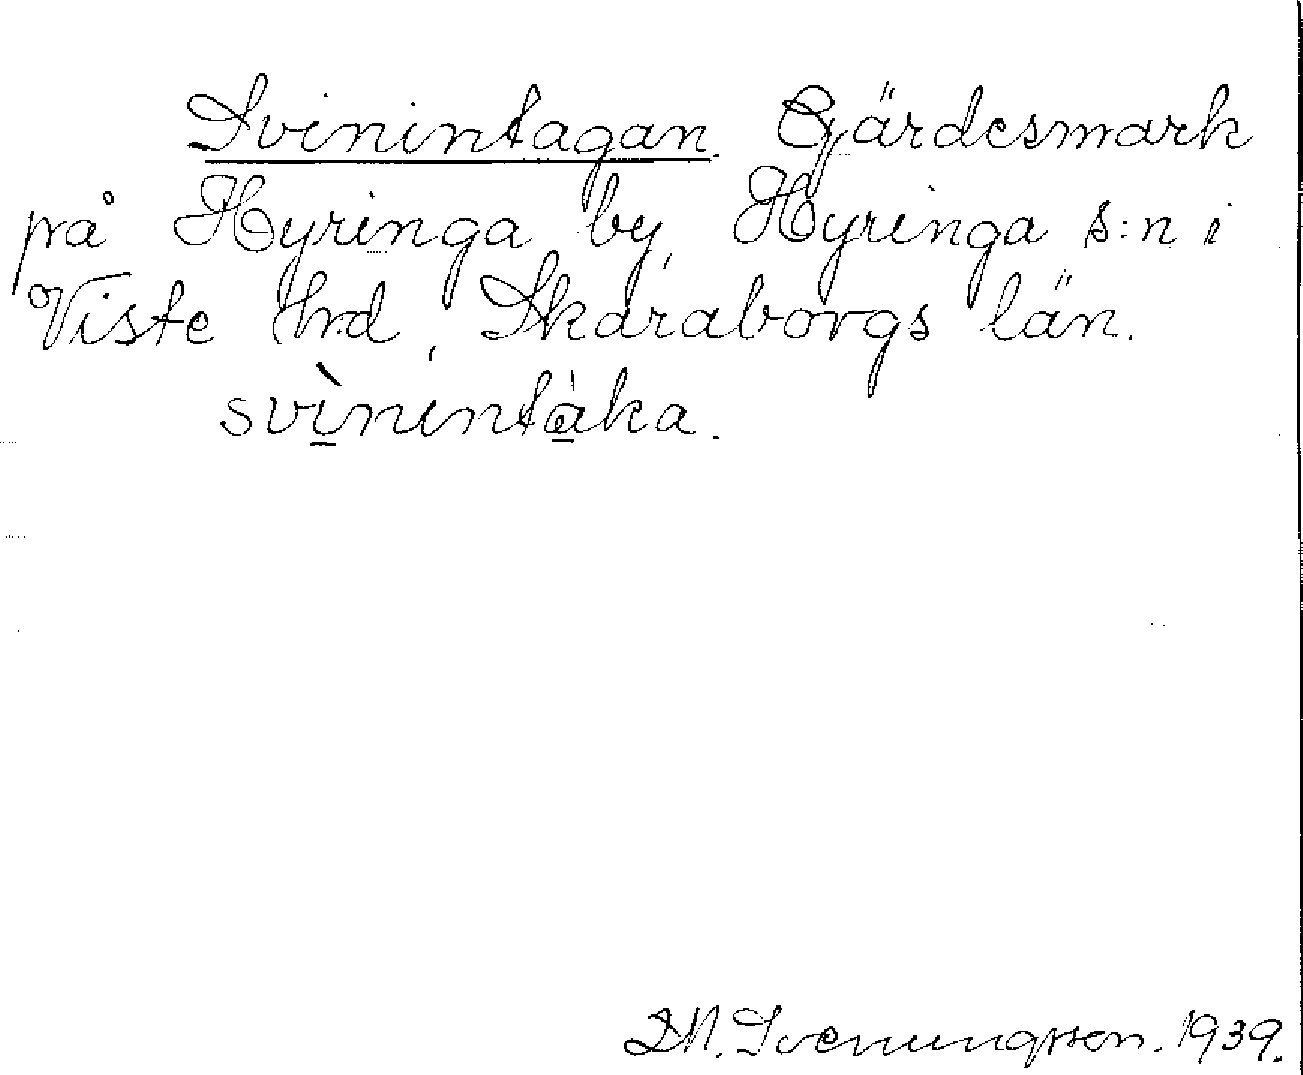 Svinintagan. Gärdesmark
på Hyringa by, Hyringa s:n i
Viste hrd, Skaraborgs län.
svìnintàka.
D.M. Svenungsson. 1939.